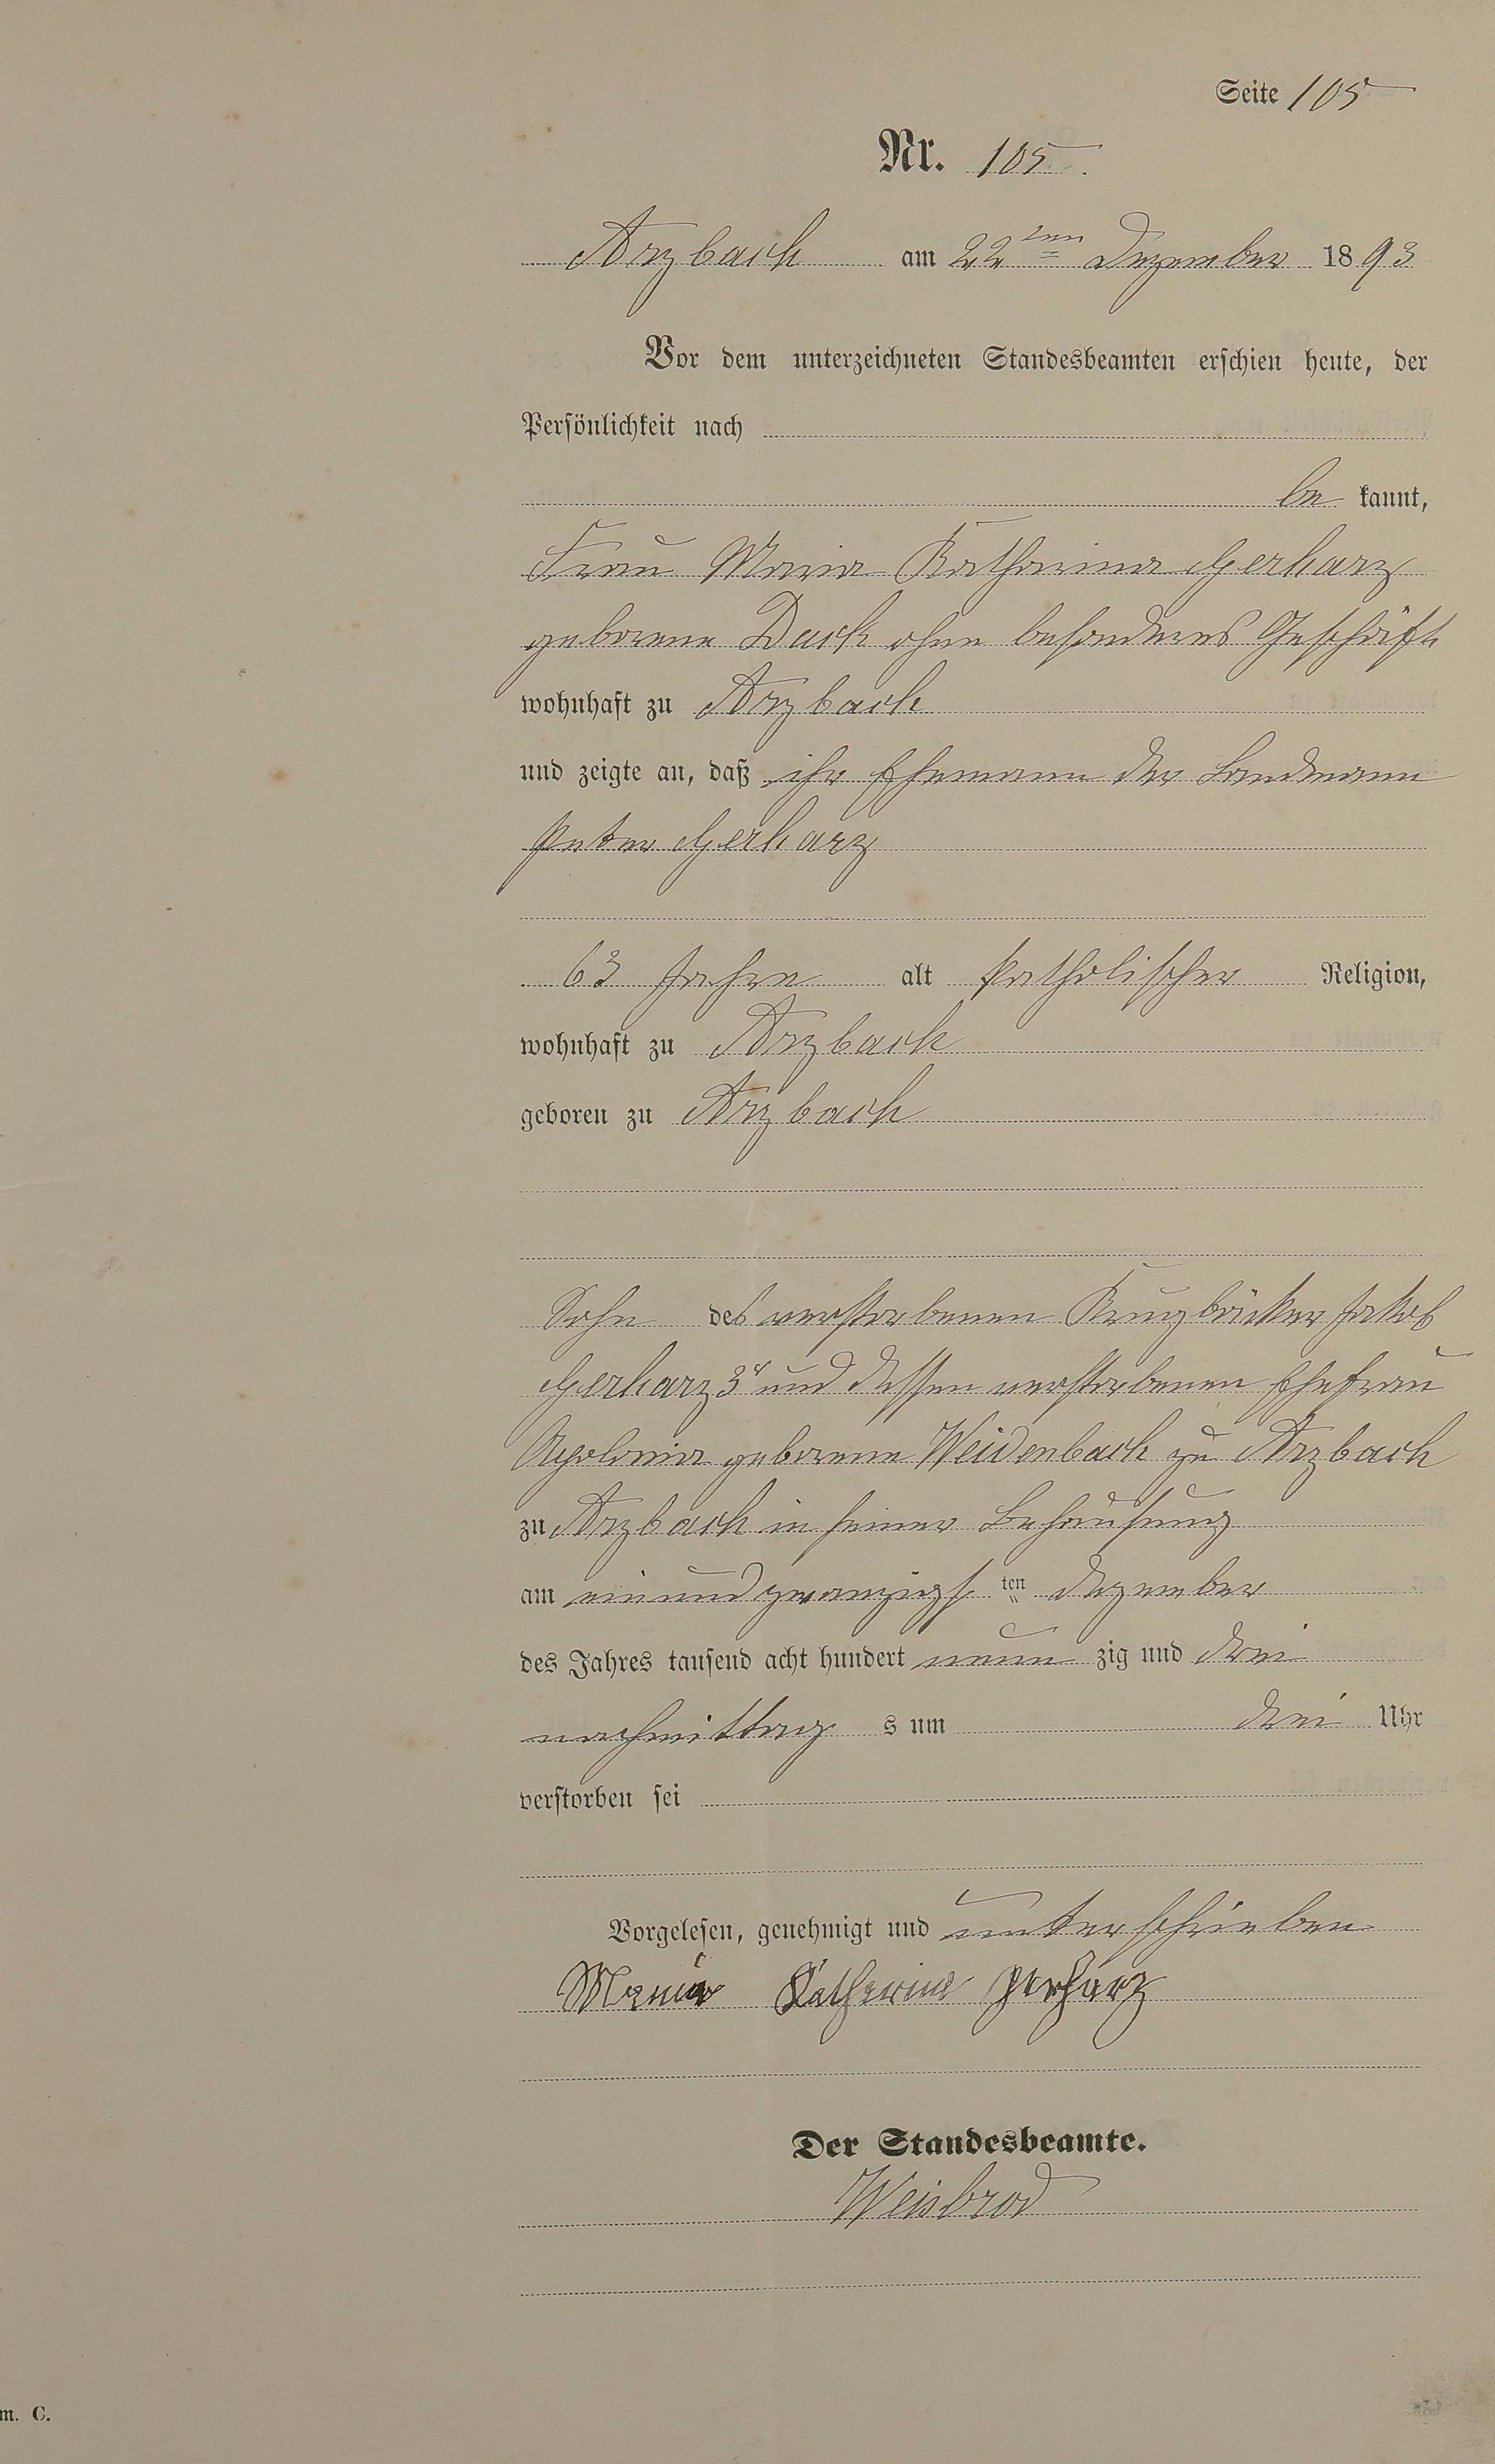 Seite 105
Nr. 105.
Arzbach am 22ten Dezember 1893
Vor dem unterzeichneten Standesbeamten erschien heute, der
Persönlichkeit nach
be kannt,
Frau Maria Katharina Gerharz
geborene Dack ohne besonderes Geschäft
wohnhaft zu Arzbach
und zeigte an, daß ihr Ehemann der Landmann
Peter Gerharz
63 Jahre alt katholischer Religion,
wohnhaft zu Arzbach
geboren zu Arzbach
Sohn des verstorbenen Krugbäcker Jakob
Gerharz 3r und dessen verstorbenen Ehefrau
Apolonia geborene Weidenbach zu Arzbach
zu Arzbach in seiner Behausung
am einundzwanzigsten Dezember
des Jahres tausend acht hundert neun zig und drei
nachmittag s um drei Uhr
verstorben sei
Vorgelesen, genehmigt und unterschrieben
Maria Katharina Gerharz
Der Standesbeamte.
Weisbrod
m. C.